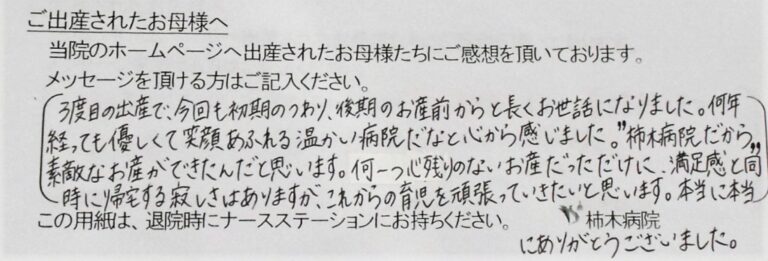 ご出産されたお母様へ
当院のホームページへ出産されたお母様たちにご感想を頂いております。
メッセージを頂ける方はご記入ください。
3度目の出産で、今回も初期のつわり、後期のお産前からと長くお世話になりました。何年
経っても優しくて笑顔あふれる温かい病院だなと心から感じました。"柿木病院だから"
素敵なお産ができたんだと思います。何一つ心残りのないお産だっただけに、満足感と同
時に帰宅する寂しさはありますが、これからの育児を頑張っていきたいと思います。本当に本当
この用紙は、退院時にナースステーションにお持ちください。 柿木病院
にありがとうございました。